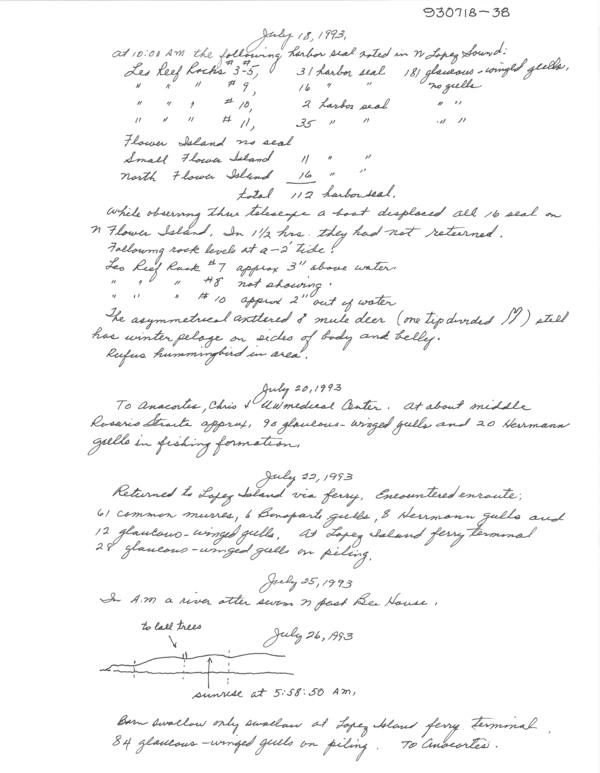 930718-38
July 18, 1993.
At 10:00 AM the following harbor seal noted in N Lopez Sound:
Leo Reef Rocks #3-#5, 31 harbor seal 181 glaucous-winged gulls.
" " " #9, 16 " " no gulls
" " " #10, 2 harbor seal " "
" " " #11, 35 " " " "
Flower Island no seal
Small Flower Island 11 " "
North Flower Island 16 " "
total 112 harbor seal.
While observing thru telescope a boat displaced all 16 seal on
N Flower Island. In 1 1/2 hrs. they had not returned.
Following rock levels at a -2' tide:
Leo Reef Rock #7 approx 3" above water.
" " " #8 not showing.
" " " #10 approx 2" out of water
The asymmetrical antlered ♂ mule deer (one tip divided) still
has winter pelage on sides of body and belly.
Rufus hummingbird in area.
July 20, 1993
To Anacortes, Chris & UW medical Center. At about middle
Rosario Straits approx. 90 glaucous-winged gulls and 20 Herrmann
gulls in fishing formation.
July 22, 1993
Returned to Lopez Island via ferry. Encountered enroute:
61 common murres, 6 Bonaparte gulls, 8 Herrmann gulls and
12 glaucous-winged gulls. At Lopez Island ferry terminal
28 glaucous-winged gulls on piling.
July 25, 1993
In A.M a river otter swam N past Bee House.
to tall trees
July 26, 1993
sunrise at 5:58:50 AM.
Barn swallow only swallow at Lopez Island ferry terminal.
84 glaucous-winged gulls on piling. To Anacortes.